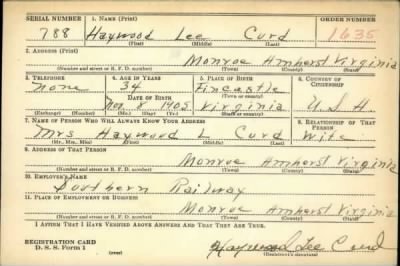 SERIAL NUMBER 1. NAME (Print) ORDER NUMBER
788 Haywood Lee Curd 1635
(First) (Middle) (Last)
2. ADDRESS (Print)
Monroe Amherst Virginia
(Number and street or R. F. D. number) (Town) (County) (State)
3. TELEPHONE 4. AGE IN YEARS 5. PLACE OF BIRTH 6. COUNTRY OF CITIZENSHIP
None 34 Fincastle
DATE OF BIRTH (Town or county)
Nov. 8 1905 Virginia U.S.A.
(Exchange) (Number) (Mo.) (Day) (Yr.) (State or country)
7. NAME OF PERSON WHO WILL ALWAYS KNOW YOUR ADDRESS 8. RELATIONSHIP OF THAT PERSON
Mrs Haywood L Curd Wife
(Mr., Mrs., Miss) (First) (Middle) (Last)
9. ADDRESS OF THAT PERSON
Monroe Amherst Virginia
(Number and street or R. F. D. number) (Town) (County) (State)
10. EMPLOYER'S NAME
Southern Railway
11. PLACE OF EMPLOYMENT OR BUSINESS
Monroe Amherst Virginia
(Number and street or R. F. D. number) (Town) (County) (State)
I AFFIRM THAT I HAVE VERIFIED ABOVE ANSWERS AND THAT THEY ARE TRUE.
REGISTRATION CARD
D. S. S. Form 1
Haywood Lee Curd
(Registrant's signature)